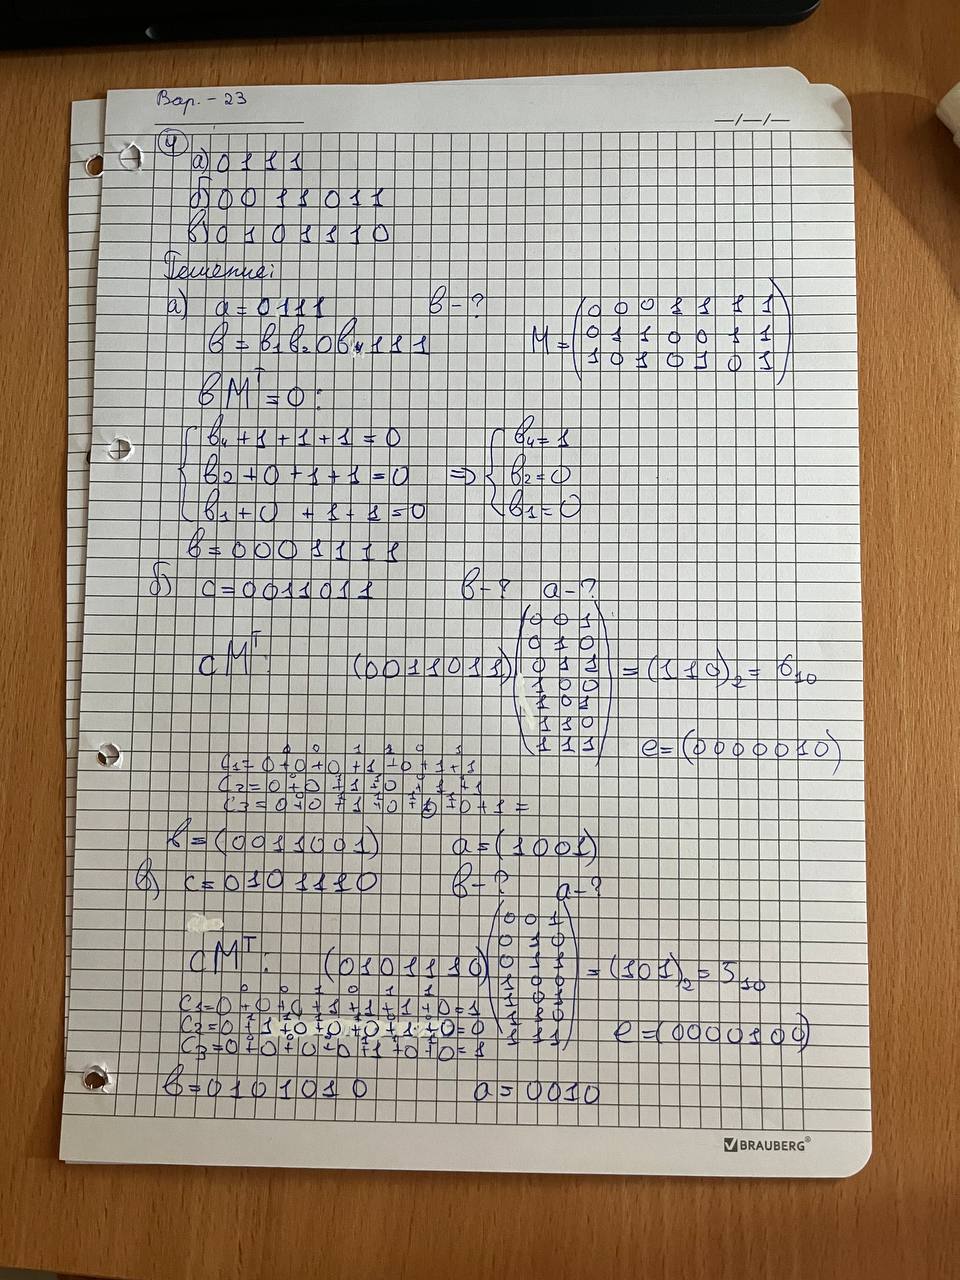 Вар. - 23
—/—/—
4
а) 0 1 1 1
б) 0 0 1 1 0 1 1
в) 0 1 0 1 1 1 0
Решение:
а) a = 0111 в - ?
в = в₁в₂0в₄111
M = (0 0 0 1 1 1 1
0 1 1 0 0 1 1
1 0 1 0 1 0 1)
вMᵀ = 0:
{ в₄ + 1 + 1 + 1 = 0 => { в₄ = 1
в₂ + 0 + 1 + 1 = 0 в₂ = 0
в₁ + 0 + 1 + 1 = 0 в₁ = 0
в = 0001111
б) c = 0011011 в - ? a - ?
cMᵀ: (0011011) (0 0 1
0 1 0
0 1 1
1 0 0
1 0 1
1 1 0
1 1 1) = (110)₂ = 6₁₀
e = (0000010)
0 0 1 1 0 1
C₁ = 0+0+0+1+0+1+1
C₂ = 0+0+1+0+1+1
C₃ = 0+0+1+0+0+0+1 =
в = (0011001) a = (1001)
в) c = 0101110 в - ? a - ?
cMᵀ: (0101110) (0 0 1
0 1 0
0 1 1
1 0 0
1 0 1
1 1 0
1 1 1) = (101)₂ = 5₁₀
0 0 1 0 1 1
C₁ = 0+0+0+1+1+1+0 = 1
C₂ = 0+1+0+0+0+1+0 = 0
C₃ = 0+0+0+0+1+0+0 = 1
e = (0000100)
в = 0101010 a = 0010
BRAUBERG®